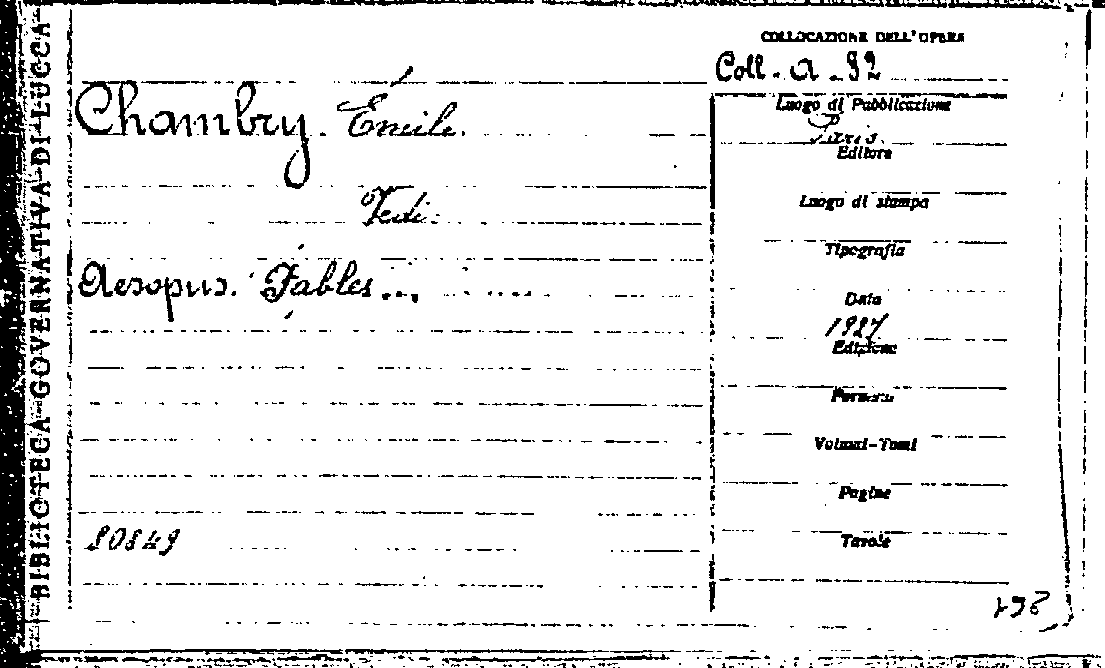 BIBLIOTECA GOVERNATIVA DI LUCCA
COLLOCAZIONE DELL'OPERA
Coll. A. 92
Chambry. Émile.
Luogo di Pubblicazione
Paris.
Editore
Vedi:
Luogo di stampa
Tipografia
Aesopus. Fables...
Data
1927
Edizione
Formato
Volumi-Tomi
Pagine
80849
Tavole